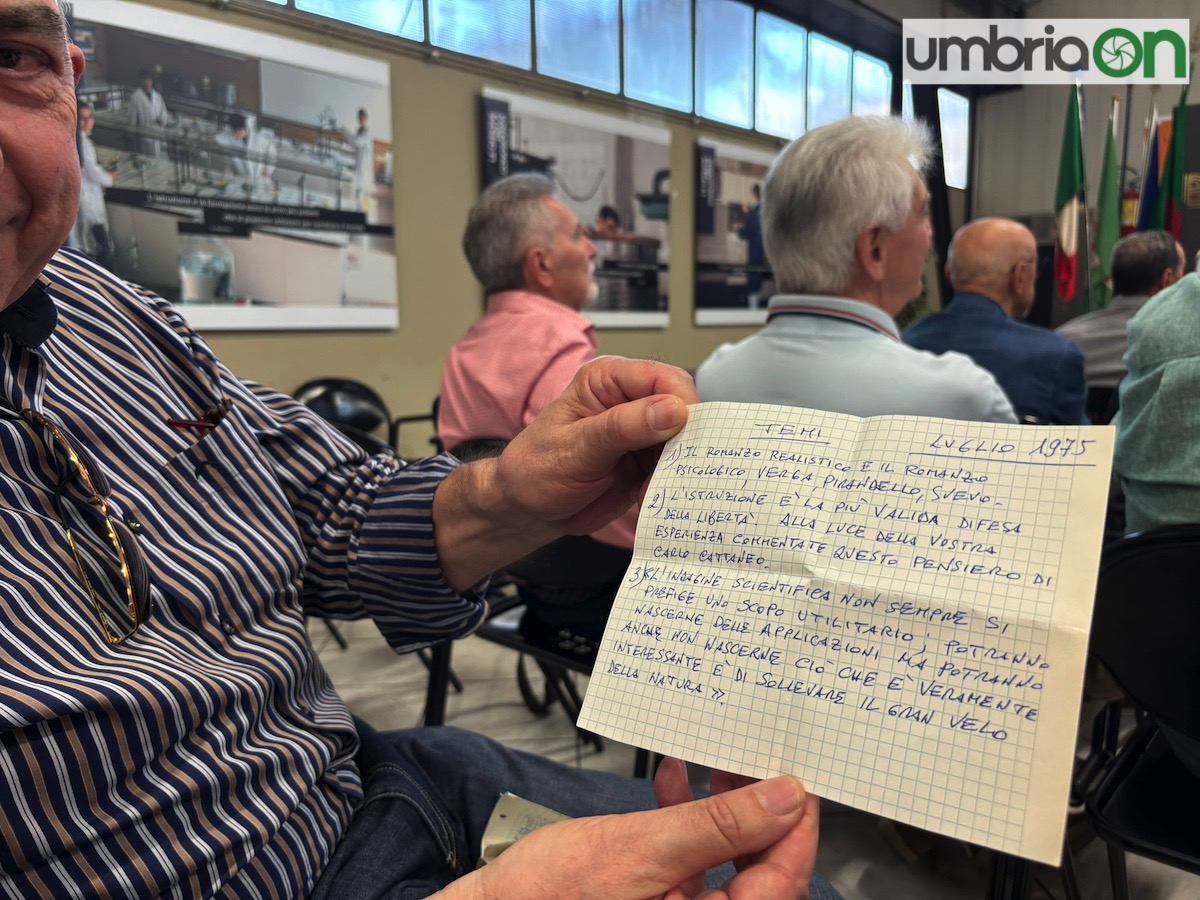 umbriaON
TEMI
LUGLIO 1975
1) IL ROMANZO REALISTICO E IL ROMANZO
PSICOLOGICO, VERGA, PIRANDELLO, SVEVO-
2) L'ISTRUZIONE E' LA PIÙ VALIDA DIFESA
DELLA LIBERTA'. ALLA LUCE DELLA VOSTRA
ESPERIENZA COMMENTATE QUESTO PENSIERO DI
CARLO CATTANEO.
3) «L'INDAGINE SCIENTIFICA NON SEMPRE SI
PREFIGE UNO SCOPO UTILITARIO; POTRANNO
NASCERNE DELLE APPLICAZIONI MA POTRANNO
ANCHE NON NASCERNE CIÒ CHE E' VERAMENTE
INTERESSANTE E' DI SOLLEVARE IL GRAN VELO
DELLA NATURA».